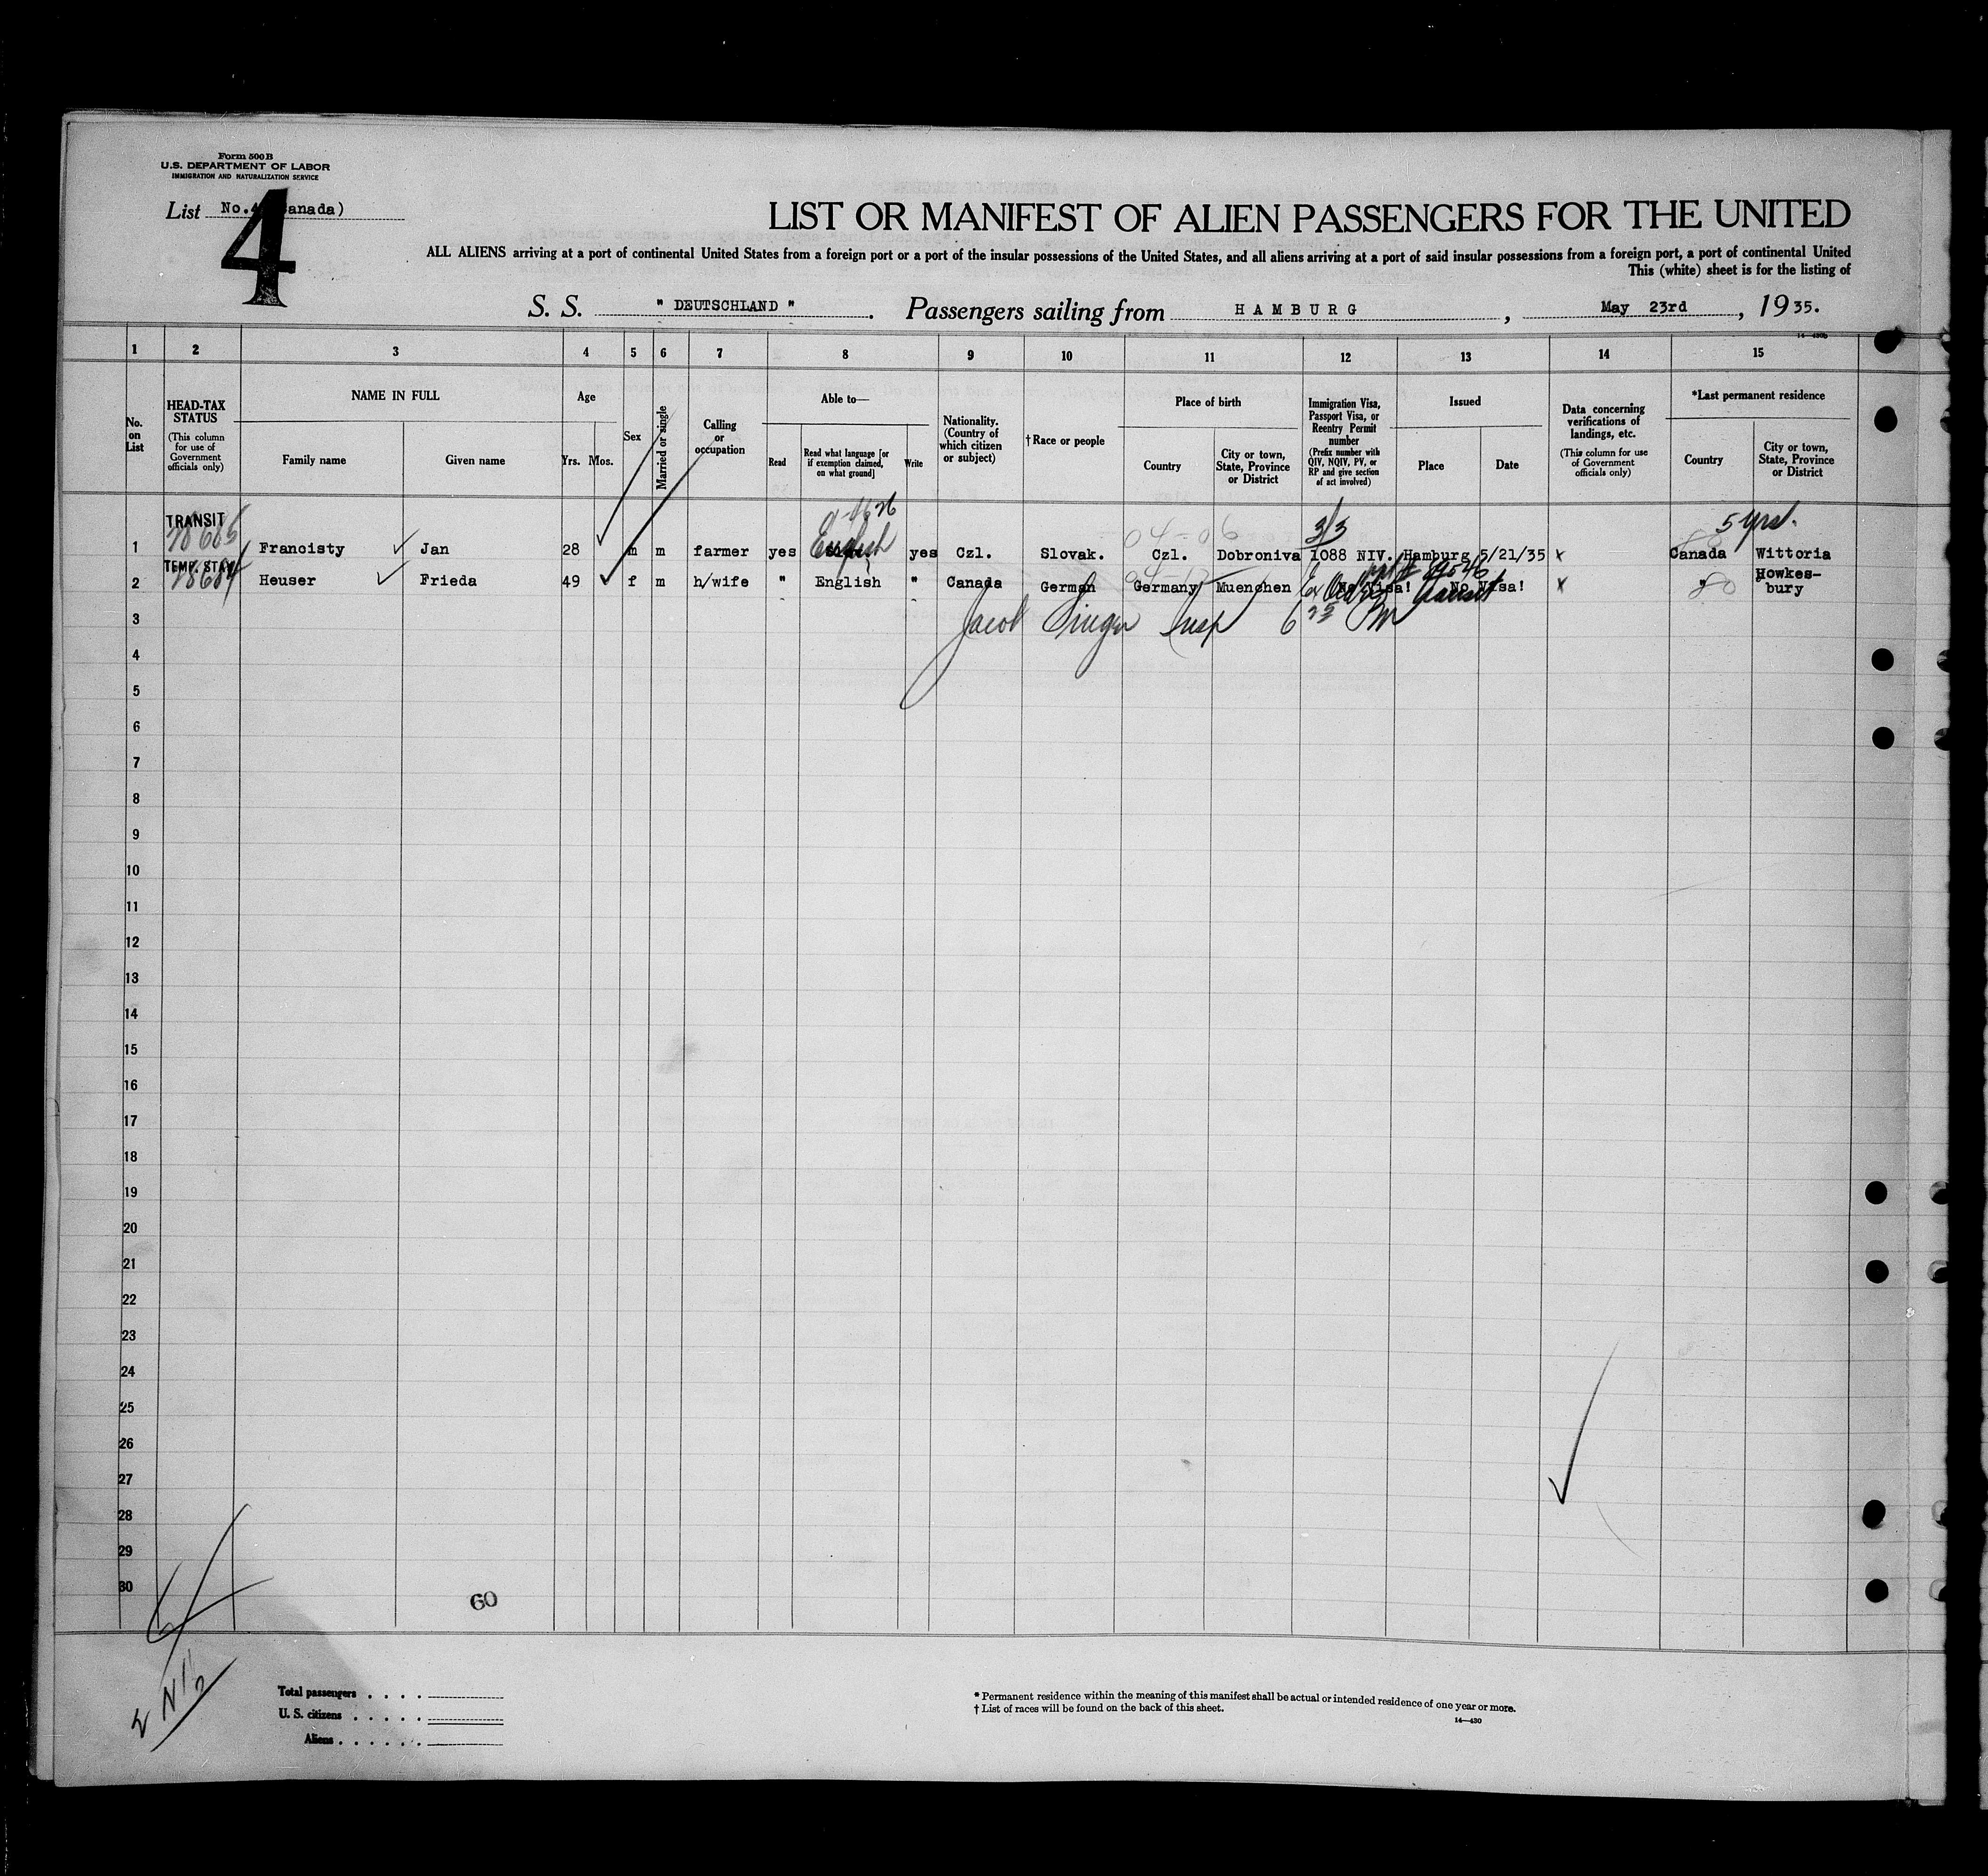 Form 500 B
U.S. DEPARTMENT OF LABOR
IMMIGRATION AND NATURALIZATION SERVICE
List No. 4 Canada)
4
LIST OR MANIFEST OF ALIEN PASSENGERS FOR THE UNITED
ALL ALIENS arriving at a port of continental United States from a foreign port or a port of the insular possessions of the United States, and all aliens arriving at a port of said insular possessions from a foreign port, a port of continental United
This (white) sheet is for the listing of
S. S. " DEUTSCHLAND " . Passengers sailing from HAMBURG , May 23rd , 19 35.
1 2 3 4 5 6 7 8 9 10 11 12 13 14 15
No. on List
HEAD-TAX STATUS
(This column for use of Government officials only)
NAME IN FULL
Family name Given name
Age
Yrs. Mos.
Sex
Married or single
Calling or occupation
Able to—
Read
Read what language [or if exemption claimed, on what ground]
Write
Nationality. (Country of which citizen or subject)
† Race or people
Place of birth
Country
City or town, State, Province or District
Immigration Visa, Passport Visa, or Reentry Permit number
(Prefix number with QIV, NQIV, PV, or RP and give section of act involved)
Issued
Place Date
Data concerning verifications of landings, etc.
(This column for use of Government officials only)
*Last permanent residence
Country
City or town, State, Province or District
TRANSIT 3/3 5 yrs.
1 Francisty Jan 28 m m farmer yes English yes Czl. Slovak. Czl. Dobroniva 1088 NIV. Hamburg 5/21/35 x Canada Wittoria
TEMP. STAY
2 Heuser Frieda 49 f m h/wife " English " Canada German Germany Muenchen No Visa! No Visa! x " Howkes-
bury
3 Jacob Singer Insp 6 25 PM
4
5
6
7
8
9
10
11
12
13
14
15
16
17
18
19
20
21
22
23
24
25
26
27
28
29
30
60
Total passengers
U. S. citizens
Aliens
* Permanent residence within the meaning of this manifest shall be actual or intended residence of one year or more.
† List of races will be found on the back of this sheet.
14—430